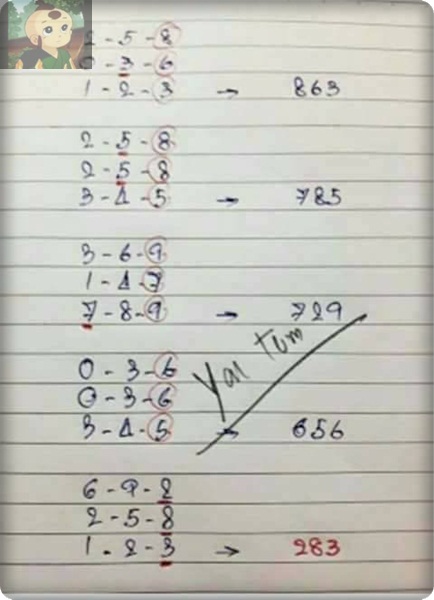 2-5-8
0-3-6
1-2-3 → 863
2-5-8
2-5-8
3-4-5 → 785
3-6-9
1-4-7
7-8-9 → 729
0-3-6
0-3-6
3-4-5 → 656
Yai Tom
6-9-2
2-5-8
1-2-3 → 283